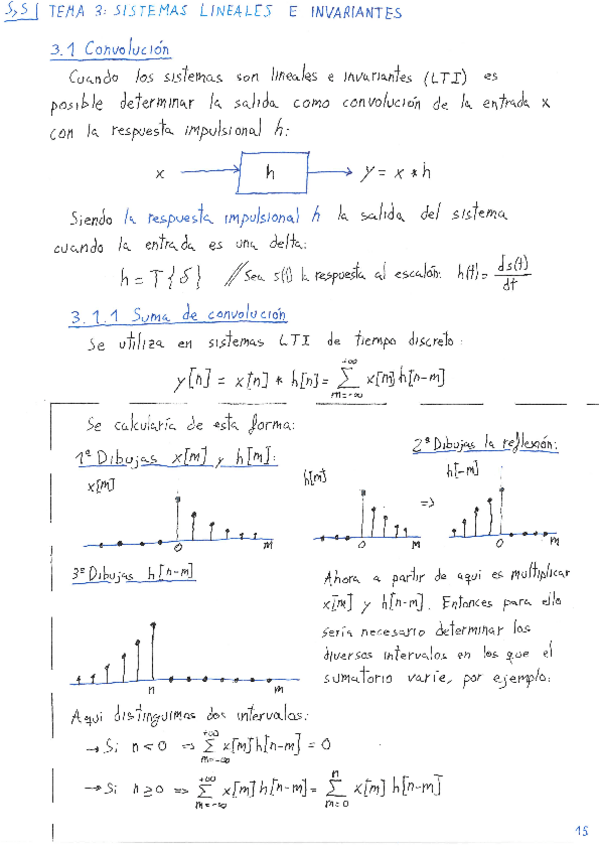 S,S TEMA 3: SISTEMAS LINEALES E INVARIANTES
3.1 Convolución
Cuando los sistemas son lineales e invariantes (LTI) es
posible determinar la salida como convolución de la entrada x
con la respuesta impulsional h:
x h y = x * h
Siendo la respuesta impulsional h la salida del sistema
cuando la entrada es una delta:
h = T{δ} // Sea s(t) la respuesta al escalón: h(t) = ds(t)/dt
3.1.1 Suma de convolución
Se utiliza en sistemas LTI de tiempo discreto:
y[n] = x[n] * h[n] = ∑_{m=-∞}^{+∞} x[m] h[n-m]
Se calcularía de esta forma:
1º Dibujas x[m] y h[m]:
2º Dibujas la reflexión:
x[m] h[m] ⇒ h[-m]
0 m 0 m 0 m
3º Dibujas h[n-m]
n m
Ahora a partir de aqui es multiplicar
x[m] y h[n-m]. Entonces para ello
sería necesario determinar los
diversos intervalos en los que el
sumatorio varíe, por ejemplo:
Aqui distinguimos dos intervalos:
→ Si n < 0 ⇒ ∑_{m=-∞}^{+∞} x[m] h[n-m] = 0
→ Si n ≥ 0 ⇒ ∑_{m=-∞}^{+∞} x[m] h[n-m] = ∑_{m=0}^{n} x[m] h[n-m]
15